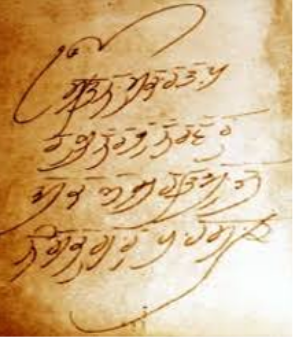 ੴ
ਸਤਿਨਾਮੁ ਕਰਤਾ ਪੁ
ਰਖੁ ਨਿਰਭਉ ਨਿਰਵੈਰੁ
ਅਕਾਲ ਮੂਰਤਿ ਅਜੂਨੀ
ਸੈਭੰ ਗੁਰ ਪ੍ਰਸਾਦਿ